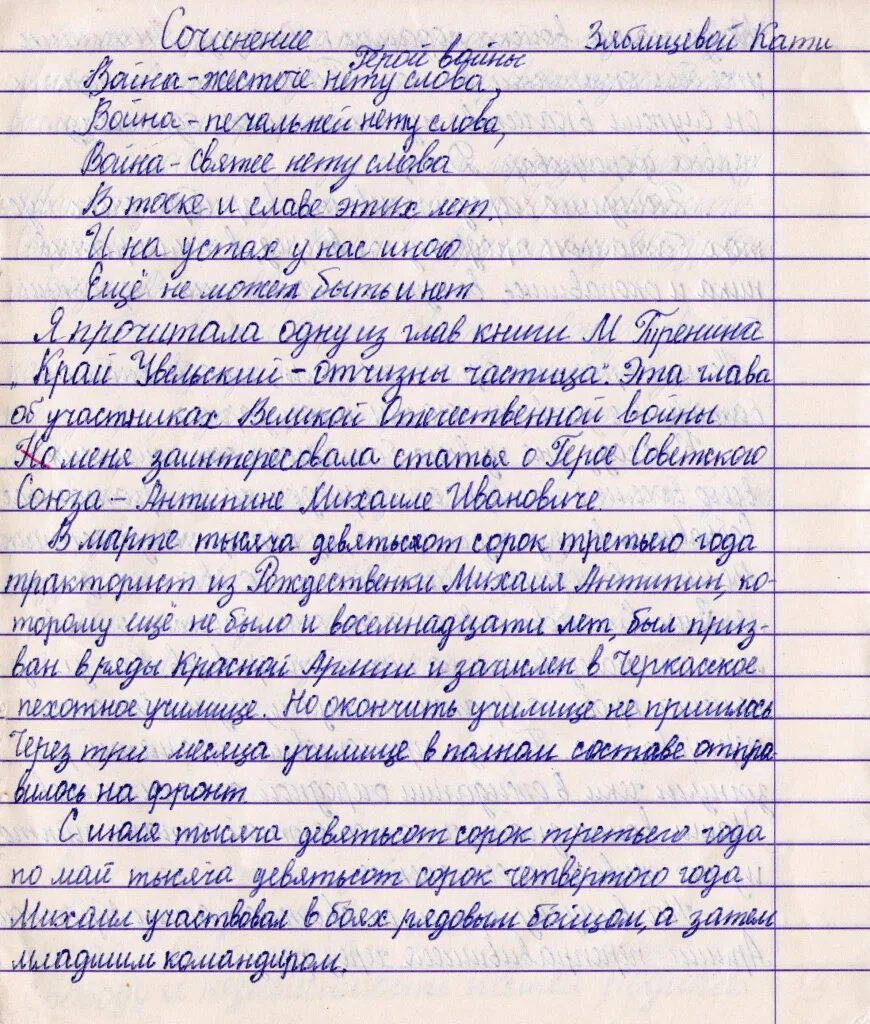 Сочинение Зяблицевой Кати
Герой войны
Война - жесточе нету слова,
Война - печальней нету слова,
Война - святее нету слова
В тоске и славе этих лет.
И на устах у нас иного
Ещё не может быть и нет
Я прочитала одну из глав книги М Тренина
„Край Увельский - отчизны частица". Эта глава
об участниках Великой Отечественной войны
Но меня заинтересовала статья о Герое Советского
Союза - Антипине Михаиле Ивановиче.
В марте тысяча девятьсот сорок третьего года
тракторист из Рождественки Михаил Антипин, ко-
торому ещё не было и восемнадцати лет, был приз-
ван в ряды Красной Армии и зачислен в Черкасское
пехотное училище. Но окончить училище не пришлось
Через три месяца училище в полном составе отпра
вилось на фронт
С июля тысяча девятьсот сорок третьего года
по май тысяча девятьсот сорок четвёртого года
Михаил участвовал в боях рядовым бойцом, а затем
младшим командиром.